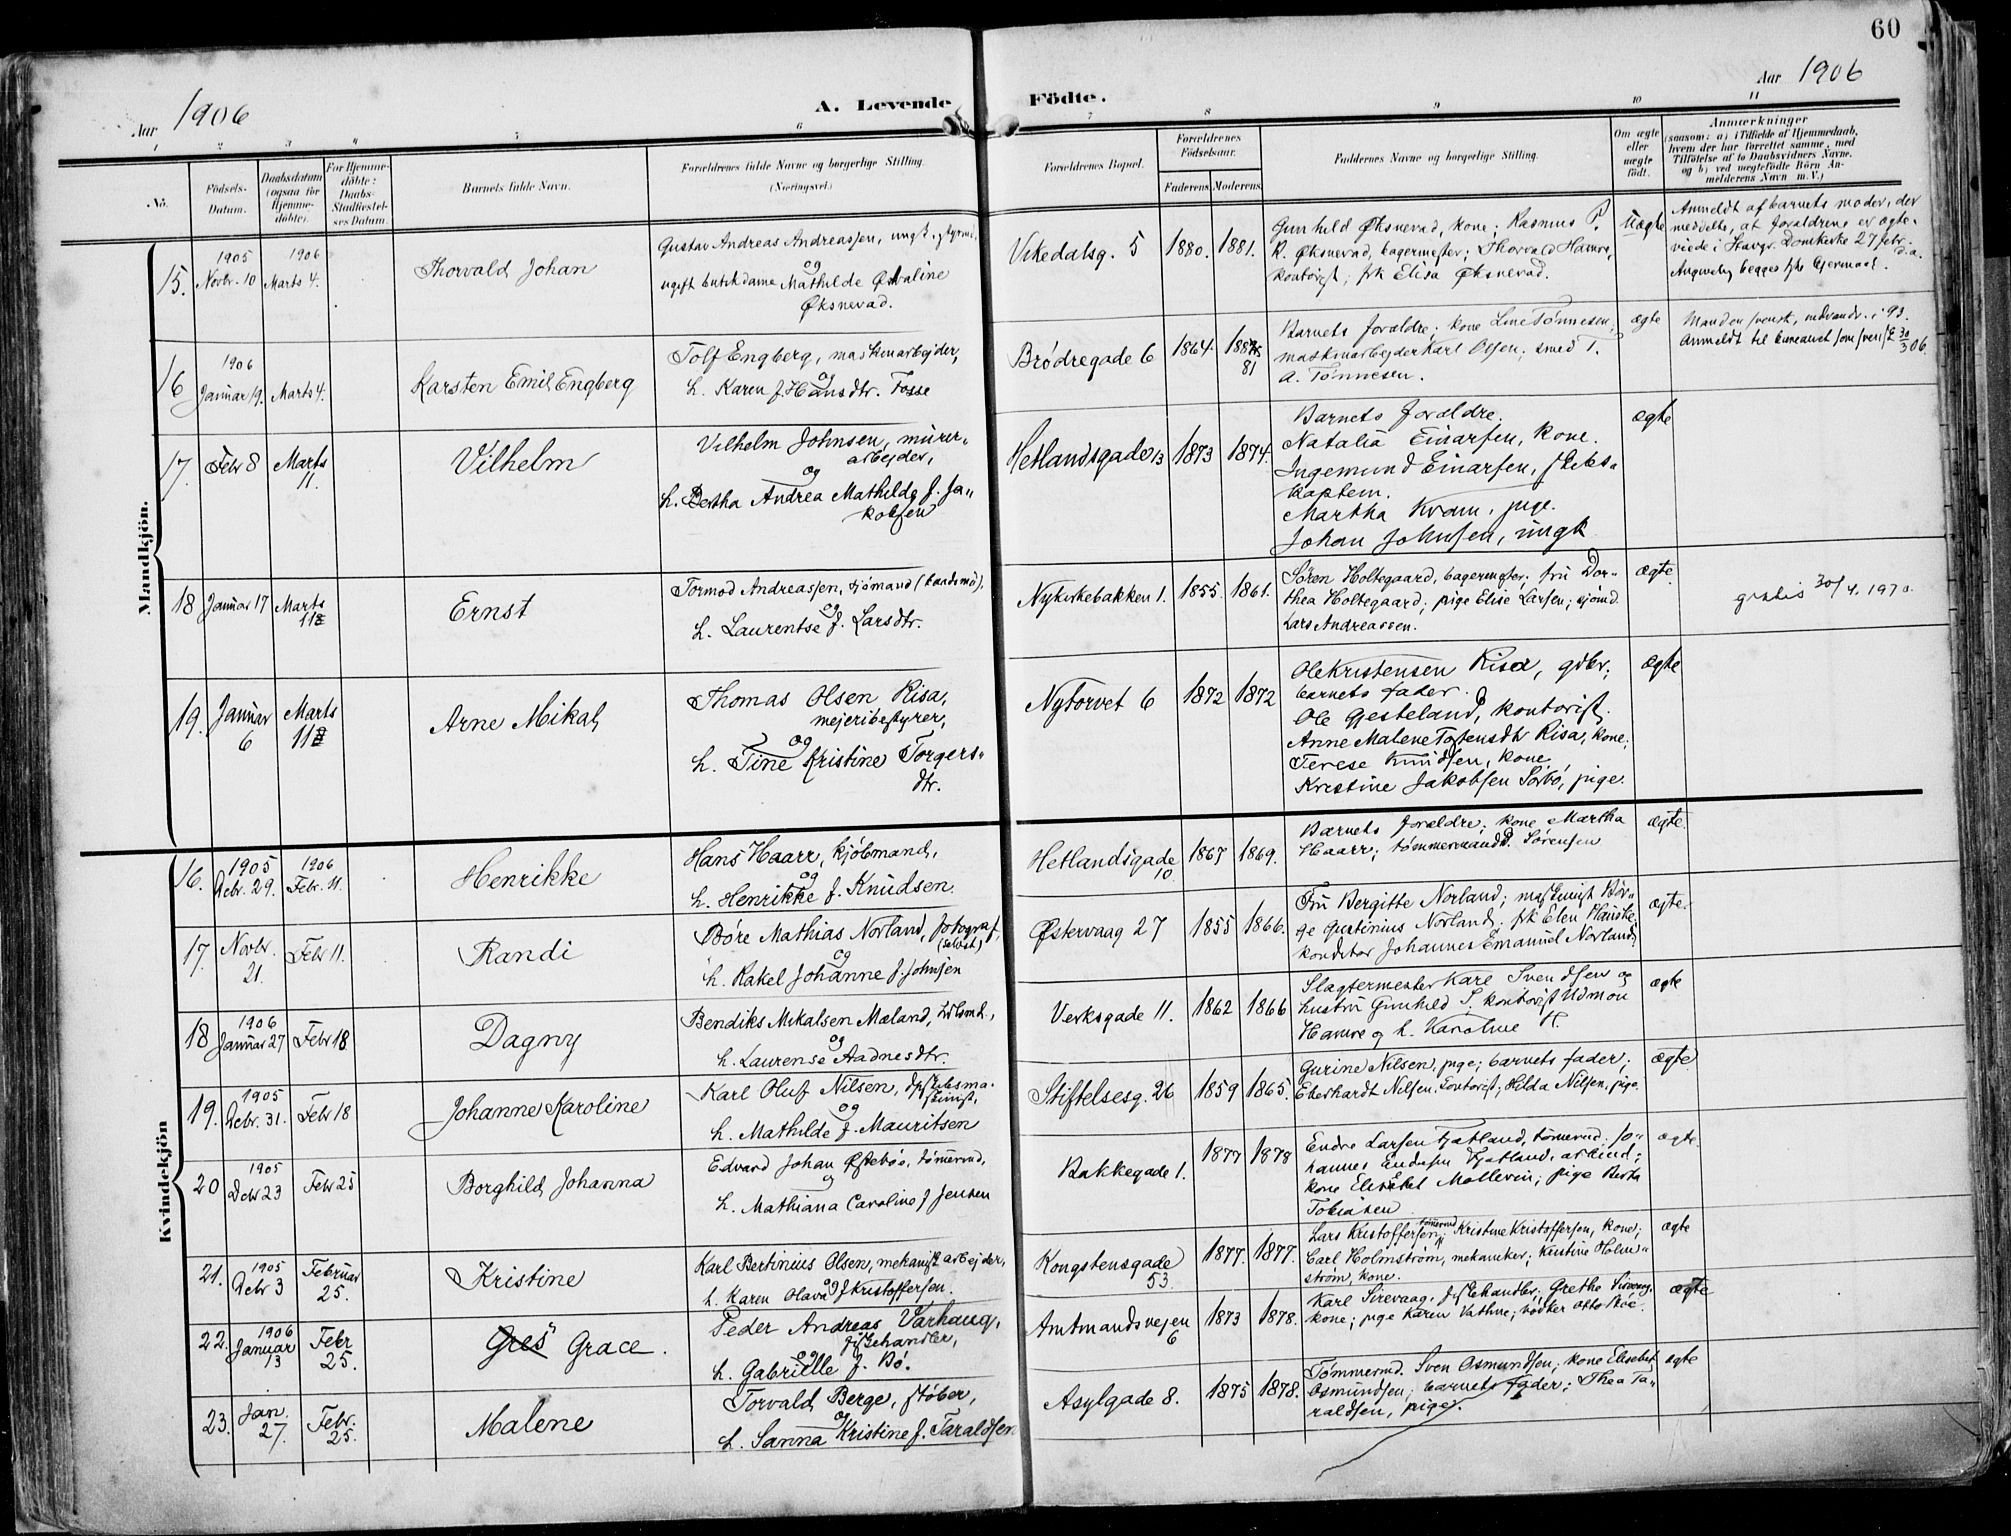 60
Aar 1906
A. Levende
Födte.
Aar 1906
1 2 3 4 5 6 7 8 9 10 11
No.
Födsels-
Datum.
Daabsdatum
(ogsaa for
Hjemme-
döbte).
For Hjemme-
döbte:
Daabs-
Stadfæstel-
ses Datum.
Barnets fulde Navn.
Forældrenes fulde Navne og borgerlige Stilling.
(Næringsvei.)
Forældrenes Bopæl.
Forældrenes
Födselsaar.
Faderens. Moderens.
Faddernes Navne og borgerlige Stilling.
Om ægte
eller
uægte
födt.
Anmærkninger
(saasom: a) i Tilfælde af Hjemmedaab,
hvem der har forrettet samme, med
Tilföielse af to Daabsvidners Navne,
og b) ved uægtefödte Börn An-
melderens Navn m. V.)
Mandkjön.
15.
1905
Novbr. 10
1906
Marts 4.
Thorvald Johan
Gustav Andreas Andreassen, ungk. styrm.
og
ugift butikdame Mathilde Østvaline
Øksnevad.
Vikedalsg. 5
1880.
1881.
Gunhild Øksnevad, kone; Rasmus P.
R. Øksnevad, bagermester; Thorvald Havre,
kontorist; frk Elisa Øksnevad.
Uægte
Anmeldt af barnets moder, der
meddelte, at forældrene er ægte-
viede i Stavgr. Domkirke 27 febr.
d.a.
16
1906
Januar 19.
Marts 4.
Karsten Emil Engberg
Tolf Engberg, maskinarbejder,
og
h. Karen f. Hansdtr. Fosse
Brødregade 6
1864.
81
Barnets forældre; kone Line Tønnesen;
maskinarbejder Karl Olsen; smed T.
A. Tønnesen.
ægte
Manden svensk, indvandr. i 93.
30/3 06.
17.
Febr 8
Marts
11.
Vilhelm
Vilhelm Johnsen, murer-
arbejder,
og
h. Bertha Andrea Mathilde f. Ja-
kobsen
Hetlandsgade 13
1873
1874.
Barnets forældre.
Natalia Einarsen, kone.
Ingemund Einarsen, skibs-
kaptein.
Martha Kvam, pige.
Johan Johnsen, ungk.
ægte
18
Januar 17
Marts
11
Ernst
Tormod Andreassen, sjömand (baadsmd),
og
h. Laurentse f. Larsdtr.
Nykirkebakken 1.
1855.
1861.
Sören Holtegaard, bagermester; fru Dor-
thea Holtegaard; pige Elise Larsen; sjömd.
Lars Andreassen.
ægte.
gratis 30/4. 1970.
19.
Januar
6
Marts
11
Arne Mikal
Thomas Olsen Risa,
mejeribestyrer,
og
h. Tine Kristine Torgers-
dtr.
Nytorvet 6
1872
1872
Ole Kristensen Risa, gdbr;
barnets fader.
Ole Gjesteland, kontorist.
Anne Malene Tostensdtr Risa, kone;
Terese Knudsen, kone,
Kristine Jakobsen Sörbö, pige.
ægte
Kvindekjön
16.
1905
Debr. 29.
1906
Febr. 11.
Henrikke
Hans Haarr, kjöbmand,
og
h. Henrikke f. Knudsen.
Hetlandsgade
10.
1867
1869.
Barnets forældre; kone Martha
Haarr; tømmermand P. Sörensen
ægte.
17.
Novbr.
21.
Febr 11.
Randi
Böre Mathias Norland, fotograf,
og
h. Rakel Johanne f. Johnsen
Østervaag 27
1855
1866.
Fru Bergitte Norland; maskinist Bör-
ge Gustinius Norland; frk Elen Hauske.
konditor Johannes Emanuel Norland.
ægte.
18
1906
Januar 27
Febr 18.
Dagny
Bendiks Mikalsen Mæland,
og
h. Laurense Aadnesdtr.
Verksgade 11.
1862
1866
Slagtermester Karl Svendsen og
hustru Gunhild S, kontorist Udmon
Havre og h. Karoline H.
ægte
19.
1905
Debr. 31.
Febr 18
Johanne Karoline
Karl Oluf Nilsen, dpskibsma-
skinist,
og
h. Mathilde f. Mauritsen
Stiftelsesg. 26
1859
1865.
Gurine Nilsen, pige; barnets fader;
Eberhardt Nilsen. kontorist; Hilda Nilsen, pige.
ægte
20
1905
Debr 23
Febr 25
Borghild Johanna
Edvard Johan Østebö, tömrmd.
og
h. Mathiana Caroline f Jensen
Bakkegade 1.
1877
1878
Endre Larsen Fjatland, tömrmd; Jo-
hannes Endresen Fjatland, arbmd;
kone Elisabet Mollevin; pige Berta
Tobiasen
ægte.
21.
1905
Debr 3
Februar
25.
Kristine
Karl Bertinius Olsen, mekanisk arbejder,
og
h. Karen Olava f Kristoffersen.
Kongstensgade
53.
1877.
1877.
Lars Kristoffersen, tömrmd, Kristine Kristoffersen, kone;
Carl Holmström, mekaniker; Kristine Holm-
ström, kone.
ægte
22.
1906
Januar
13
Febr
25.
Gres Grace.
Peder Andreas Varhaug,
fiskehandler,
og
h. Gabrielle f. Bö.
Amtmandsvejen
6
1873
1878.
Karl Sirevaag, fiskehandler; Grethe Sirevaag,
kone; pige Karin Vathne; bødker Otto Bøe.
ægte
23.
Jan.
27.
Febr.
25.
Malene
Torvald Berge, stöber,
og
h. Sanna Kristine f. Taraldsen
Asylgade 8.
1875
1878.
Tømmermd. Sven Osmundsen; kone Elisabet
Osmundsen; barnets fader; Thea Ta-
raldsen, pige.
ægte